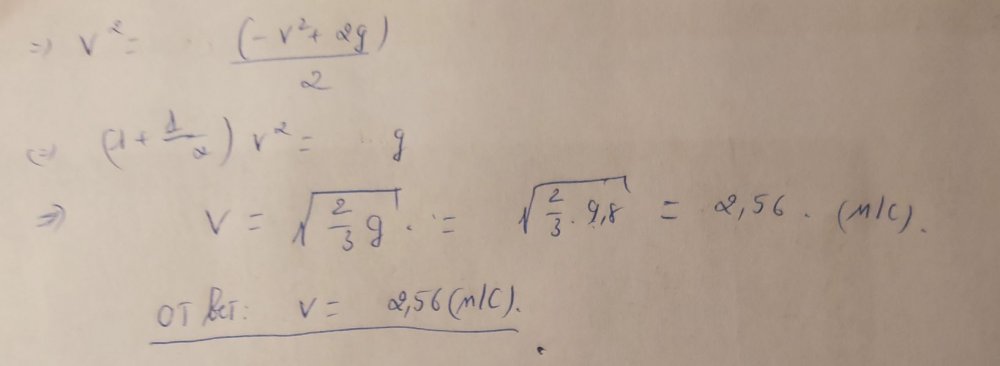 => v² = (-v² + 2g) / 2
<=> (1 + 1/2) v² = g
=> v = √(2/3 g) = √(2/3 · 9,8) = 2,56 . (м/с).
ответ: v = 2,56 (м/с).